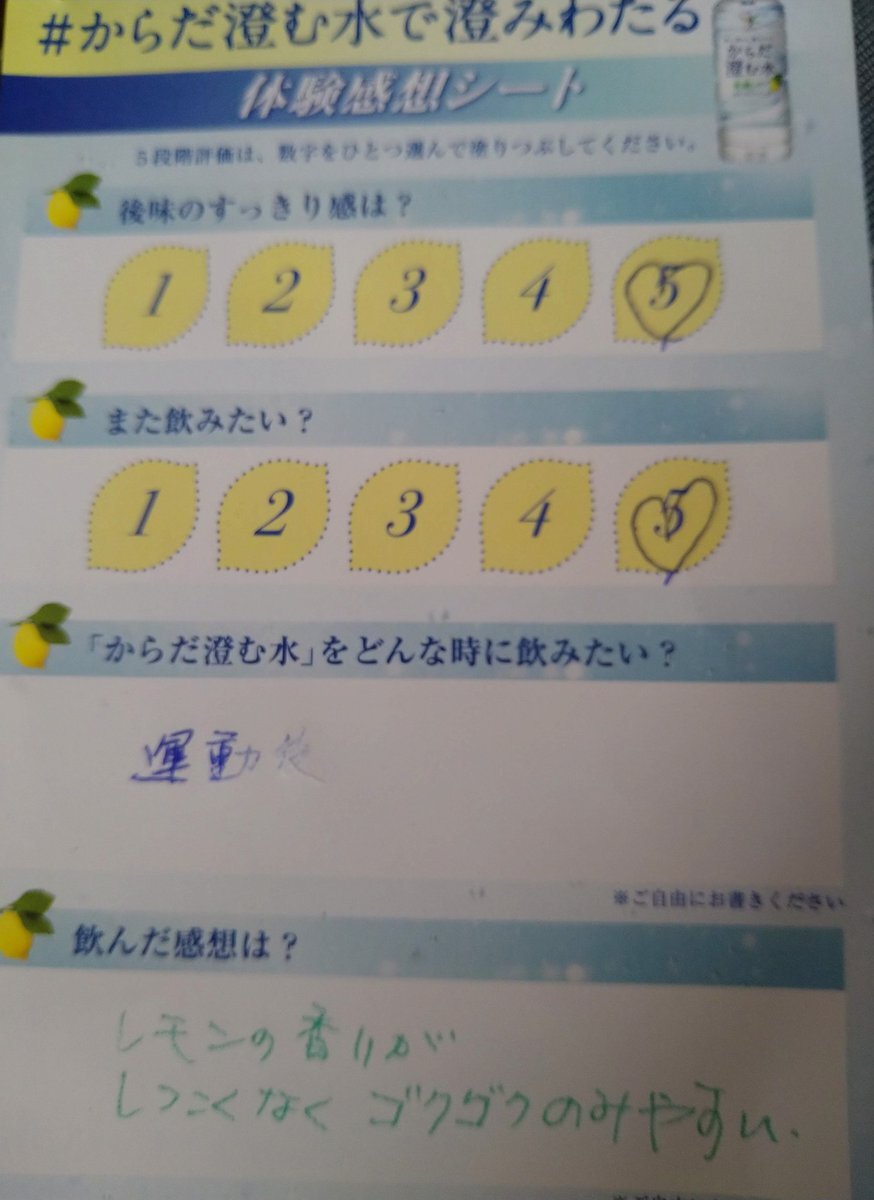 #からだ澄む水で澄みわたる
体験感想シート
からだ
澄む水
5段階評価は、数字をひとつ選んで塗りつぶしてください。
後味のすっきり感は？
1 2 3 4 5
また飲みたい？
1 2 3 4 5
「からだ澄む水」をどんな時に飲みたい？
運動後
※ご自由にお書きください
飲んだ感想は？
レモンの香りが
しつこくなく ゴクゴクのみやすい.